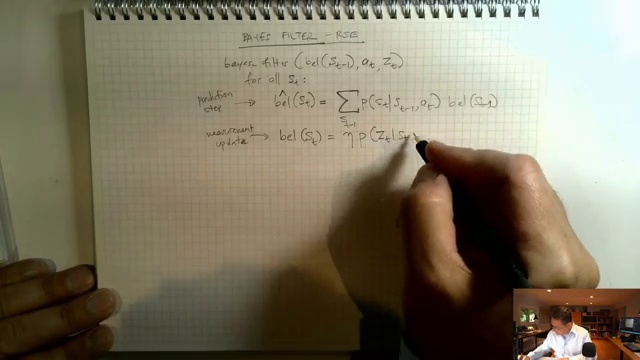 BAYES FILTER - RSE
bayes-filter (bel(s_{t-1}), a_t, z_t)
for all s_t:
prediction step → b̂el(s_t) = ∑_{s_{t-1}} p(s_t | s_{t-1}, a_t) bel(s_{t-1})
measurement update → bel(s_t) = η p(z_t | s_t